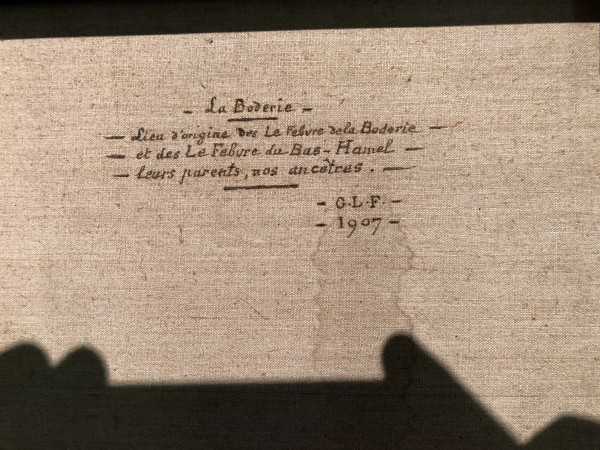 - La Boderie -
- Lieu d'origine des Le Febvre de la Boderie -
- et des Le Febvre du Bas-Hamel -
- leurs parents, nos ancêtres. -
- G.L.F. -
- 1907 -